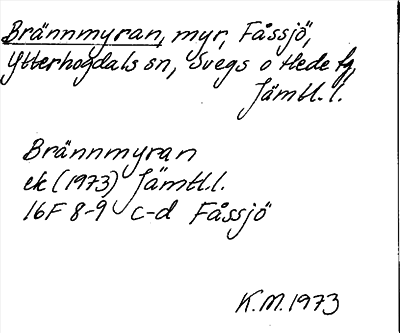 Brännmyran, myr, Fåssjö,
Ytterhogdals sn, Svegs o Hede tg,
Jämtl. l.
Brännmyran
ek (1973) Jämtl. l.
16F 8-9 c-d Fåssjö
K.M. 1973